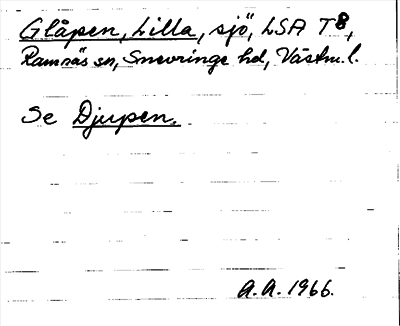 Glåpen, Lilla, sjö, LSA T8,
Ramnäs sn, Snevringe hd, Västm. l.
Se Djupen.
A.A. 1966.